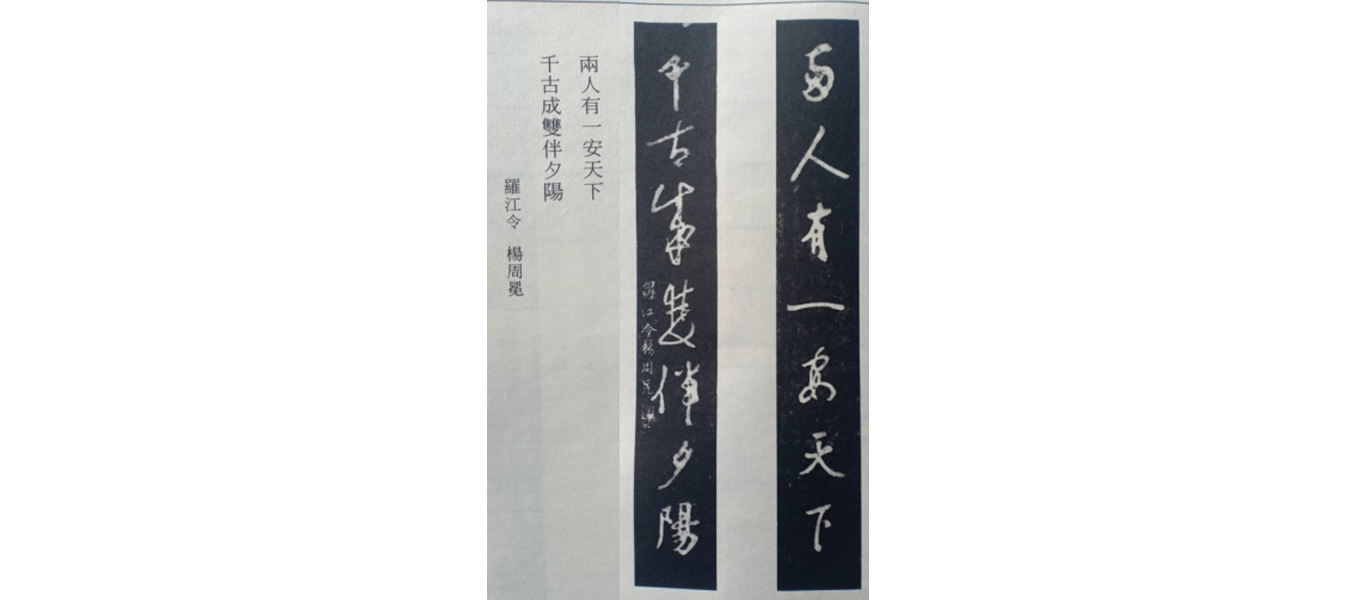 兩人有一安天下
千古成雙伴夕陽
羅江令楊周冕
兩人有一安天下
千古成雙伴夕陽
羅江令 楊周冕